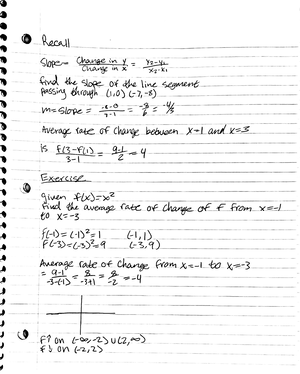 Recall
Slope = Change in y / Change in x = y₂-y₁ / x₂-x₁
find the slope of the line segment
passing through (1,0) (-7,-8)
m = slope =
Average rate of change between x=1 and x=3
is f(3)-f(1) / 3-1 = 9-1 / 2 = 4
Exercise
given f(x)=x²
find the average rate of change of f from x=-1
to x=-3
f(-1)=(-1)²=1 (-1,1)
f(-3)=(-3)²=9 (-3,9)
Average rate of change from x₁=-1 to x₂=-3
= 9-1 / -3-(-1) = 8 / -3+1 = 8 / -2 = -4
f↑ on (-∞,-2)∪(2,∞)
f↓ on (-2,2)